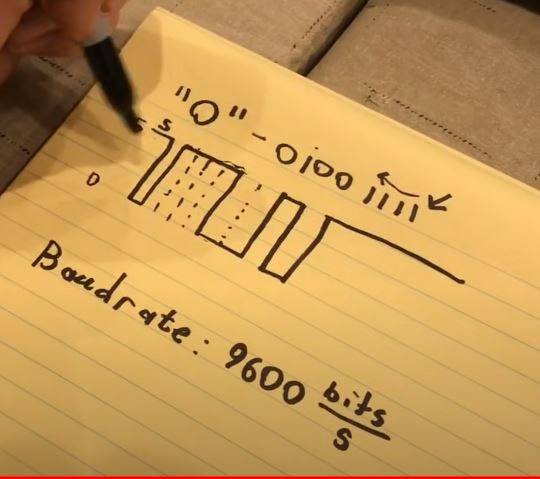 "O" - 0100 1111
S
0
Baudrate: 9600 bits
s